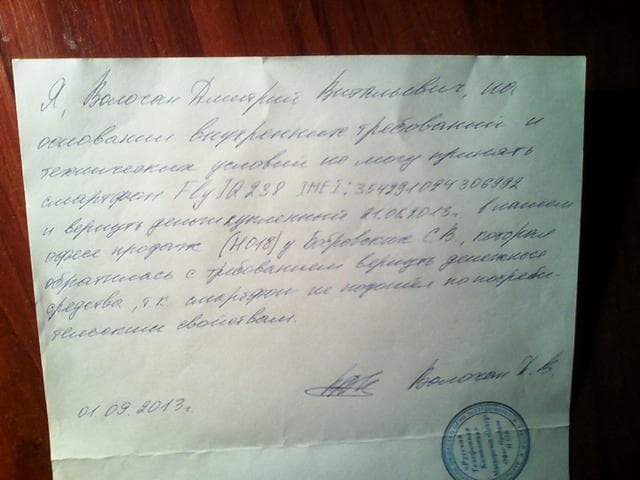 Я, Волосан Дмитрий Витальевич, на
основании внутренних требований и
технических условий не могу принять
смартфон Fly IQ238 IMEI: 354291094306992
и вернуть деньги купленный 21.06.2013г. в нашем
офисе продаж (H018) у Бобровских С.В., которая
обратилась с требованием вернуть денежные
средства, т.к. смартфон не подошел по потреби-
тельским свойствам.
01.09.2013г.